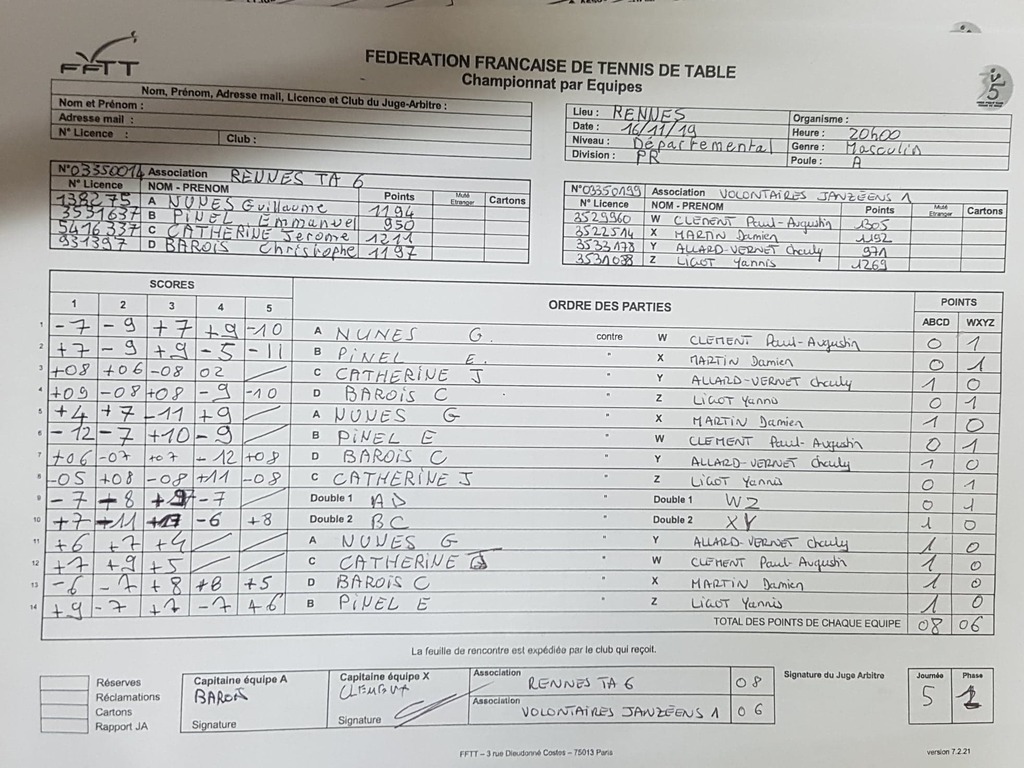 FFTT
FEDERATION FRANCAISE DE TENNIS DE TABLE
Championnat par Equipes
Nom, Prénom, Adresse mail, Licence et Club du Juge-Arbitre :
Nom et Prénom :
Adresse mail :
N° Licence : Club :
Lieu : RENNES Organisme :
Date : 16/11/19 Heure : 20h00
Niveau : Départemental Genre : Masculin
Division : PR Poule : A
N°03350014 Association RENNES TA 6
N° Licence NOM - PRENOM Points Muté Etranger Cartons
138275 A NUNES Guillaume 1194
3531637 B PINEL Emmanuel 950
5416337 C CATHERINE Jerome 1211
931397 D BAROIS Christophe 1197
N°03350199 Association VOLONTAIRES JANZÉENS 1
N° Licence NOM - PRENOM Points Muté Etranger Cartons
3529960 W CLEMENT Paul-Augustin 1305
3522514 X MARTIN Damien 1192
3533178 Y ALLARD-VERNET Charly 971
3531038 Z LIGOT Yannis 1269
SCORES ORDRE DES PARTIES POINTS
1 2 3 4 5 ABCD WXYZ
1 -7 -9 +7 +9 -10 A NUNES G. contre W CLEMENT Paul-Augustin 0 1
2 +7 -9 +9 -5 -11 B PINEL E. " X MARTIN Damien 0 1
3 +08 +06 -08 02 C CATHERINE J " Y ALLARD-VERNET Charly 1 0
4 +09 -08 +08 -9 -10 D BAROIS C " Z LIGOT Yannis 0 1
5 +4 +7 -11 +9 A NUNES G " X MARTIN Damien 1 0
6 -12 -7 +10 -9 B PINEL E " W CLEMENT Paul-Augustin 0 1
7 +06 -07 +07 -12 +08 D BAROIS C " Y ALLARD-VERNET Charly 1 0
8 -05 +08 -08 +11 -08 C CATHERINE J " Z LIGOT Yannis 0 1
9 -7 -8 -7 Double 1 AD " Double 1 WZ 0 1
10 +7 -11 -6 +8 Double 2 BC " Double 2 XY 1 0
11 +6 +7 +4 A NUNES G " Y ALLARD-VERNET Charly 1 0
12 +7 +9 +5 C CATHERINE J " W CLEMENT Paul-Augustin 1 0
13 -6 -7 +8 +8 +5 D BAROIS C " X MARTIN Damien 1 0
14 +9 -7 +7 -7 +6 B PINEL E " Z LIGOT Yannis 1 0
TOTAL DES POINTS DE CHAQUE EQUIPE 08 06
La feuille de rencontre est expédiée par le club qui reçoit.
Réserves
Réclamations
Cartons
Rapport JA
Capitaine équipe A
BAROIS
Signature
Capitaine équipe X
CLEMENT
Signature
Association RENNES TA 6 08
Association VOLONTAIRES JANZÉENS 1 06
Signature du Juge Arbitre
Journée Phase
5
FFTT – 3 rue Dieudonné Costes – 75013 Paris
version 7.2.21